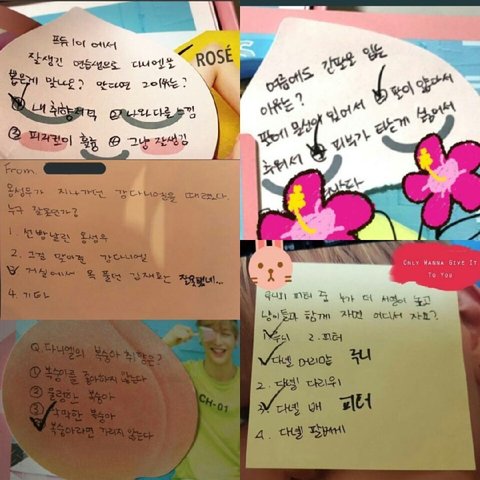 에서
잘생긴 연습생으로 다니엘만
뽑은게 맞나요? 맞다면 이유는?
내 취향저격 ② 나와 다른 느낌
③ 피지컬이 훌륭 ④ 그냥 잘생김
ROSÉ
여름에도 긴팔만 입는
이유는? 팔이 얇아서
팔에 있어서
추워서 피부가 타는게 싫어서
From.
옹성우가 지나가던 강다니엘을 때렸다.
누구 잘못인가?
1. 선방날린 옹성우
2. 그걸 맞아준 강다니엘
거실에서 목 풀던 김재환은
4. 기타
Q. 다니엘의 복숭아 취향은?
① 복숭아를 좋아하지 않는다
② 물렁한 복숭아
딱딱한 복숭아
복숭아라면 가리지 않는다
CH-01
ONLY WANNA GIVE IT
TO YOU
루니와 피터 중 누가 더 서열이 높고
냥이들과 함께 자면 어디서 자죠?
루니 2. 피터
다녤 머리맡 루니
2. 다녤 다리위
3. 다녤 배 피터
4. 다녤 팔베게